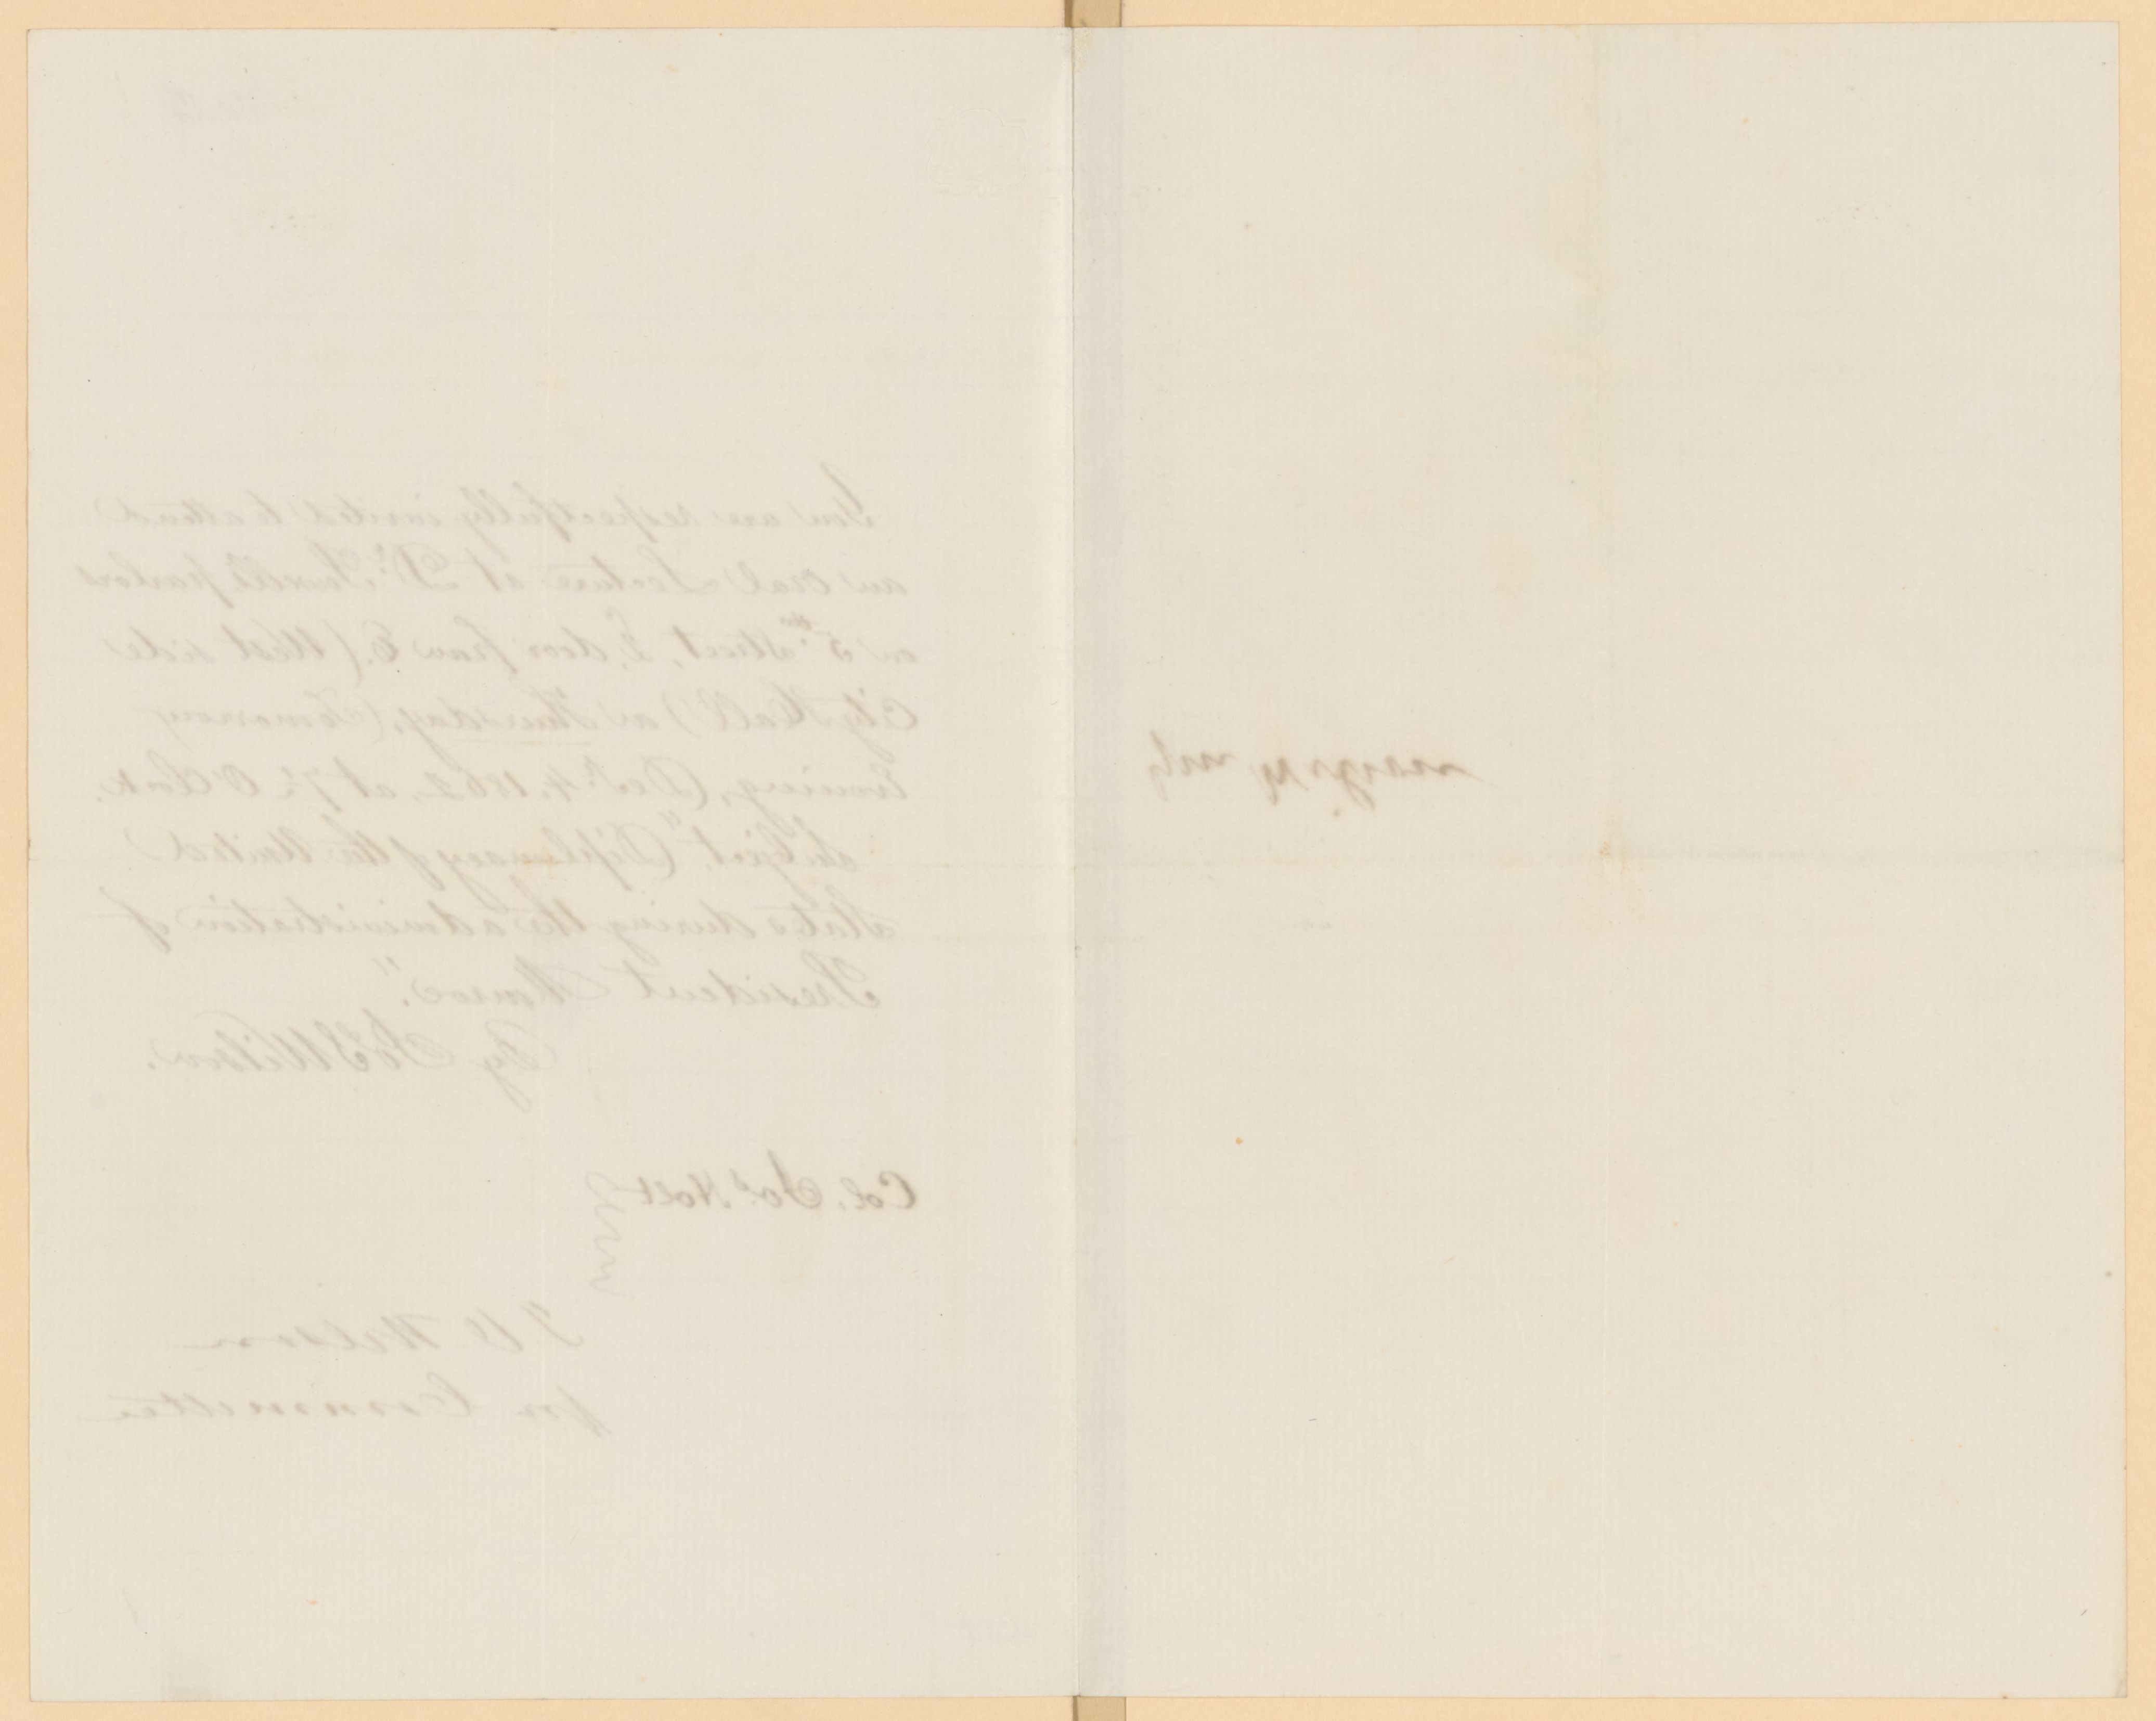 You are respectfully invited to attend
an Oral Lecture at Dr. parlors
on 5th Street, 2, door from E. (West side
City Hall) on Thursday, (Tomorrow
Evening, Dec. 4, 1862, at 7½ O'Clock.
Subject, "Diplomacy of the United
States during the administration of
President Monroe".
By Jos Wilson.
Col. Jos. Holt
Wilson
for Committee